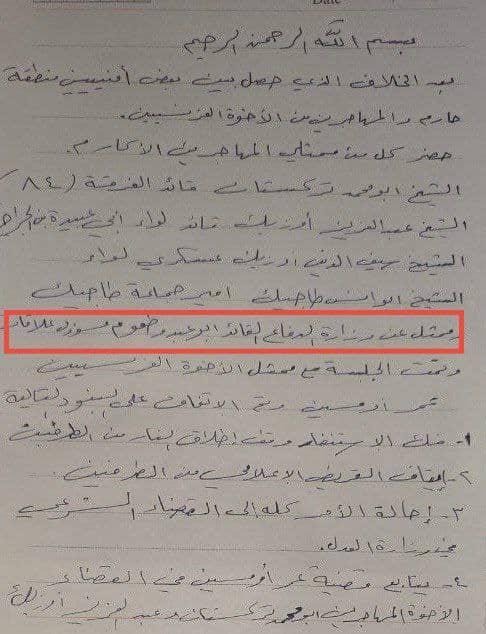 Date
بسم الله الرحمن الرحيم
بعد الخلاف الذي حصل بين بعض أمنيين منطقة
حارم والمهاجرين من الأخوة الفرنسيين.
حضر كل من ممثلي المهاجرين الأكارم.
الشيخ ابو محمد تركستان قائد الفرقة (٨٤/
الشيخ عبد العزيز أوزبك قائد لواء ابي عبيدة بن الجراح
الشيخ سيف الدين أوزبك عسكري لواء
الشيخ ابو انس طاجيك امير جماعة طاجيك
وممثل عن وزارة الدفاع القائد ابو عبدو طعوم مسؤول علاقات
وتمت الجلسة مع ممثل الأخوة الفرنسيين
عمر أومسين وتم الاتفاق على البنود التالية
١- فك الاستنفار ووقف إطلاق النار من الطرفين
٢- إيقاف التحريض الإعلامي من الطرفين.
٣- إحالة الأمر كله إلى القضاء الشرعي
في وزارة العدل.
٤- يتابع قضية عمر أومسين في القضاء
الأخوة المهاجرين ابو محمد تركستان وعبد العزيز أوزبك